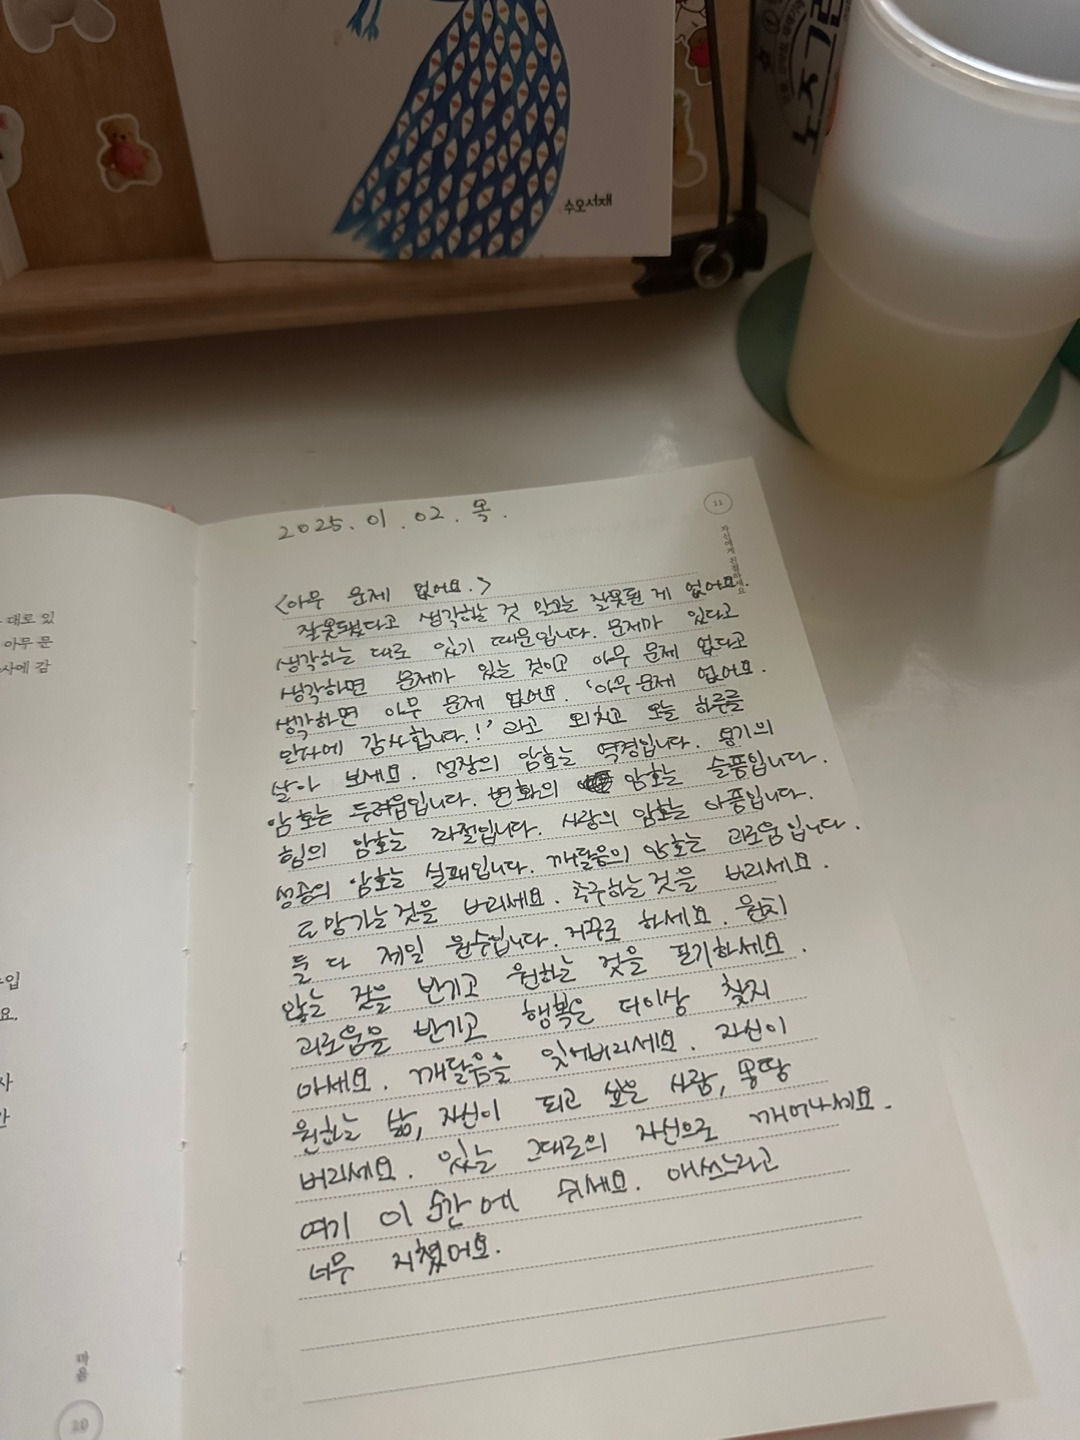 수오서재
노지감귤
대로 있
아무 문
사에 감
입
요.
사
간
마음
20
11
자신에게 친절하세요
2025. 01. 02. 목.
<아무 문제 없어요.>
잘못됐다고 생각하는 것 말고는 잘못된 게 없어요.
생각하는 대로 있기 때문입니다. 문제가 있다고
생각하면 문제가 있는 것이고 아무 문제 없다고
생각하면 아무 문제 없어요. '아무 문제 없어요.
만사에 감사합니다.!' 라고 외치고 오늘 하루를
살아 보세요. 성장의 암호는 역경입니다. 용기의
암호는 두려움입니다. 변화의 암호는 슬픔입니다.
힘의 암호는 좌절입니다. 사랑의 암호는 아픔입니다.
성공의 암호는 실패입니다. 깨달음의 암호는 괴로움입니다.
도망가는 것을 버리세요. 추구하는 것을 버리세요.
둘 다 제일 원수입니다. 거꾸로 하세요. 원치
않는 것을 반기고 원하는 것을 포기하세요.
괴로움을 반기고 행복은 더이상 찾지
마세요. 깨달음을 잊어버리세요. 자신이
원하는 삶, 자신이 되고 싶은 사람, 몽땅
버리세요. 있는 그대로의 자신으로 깨어나세요.
여기 이 순간에 쉬세요. 애쓰느라고
너무 지쳤어요.